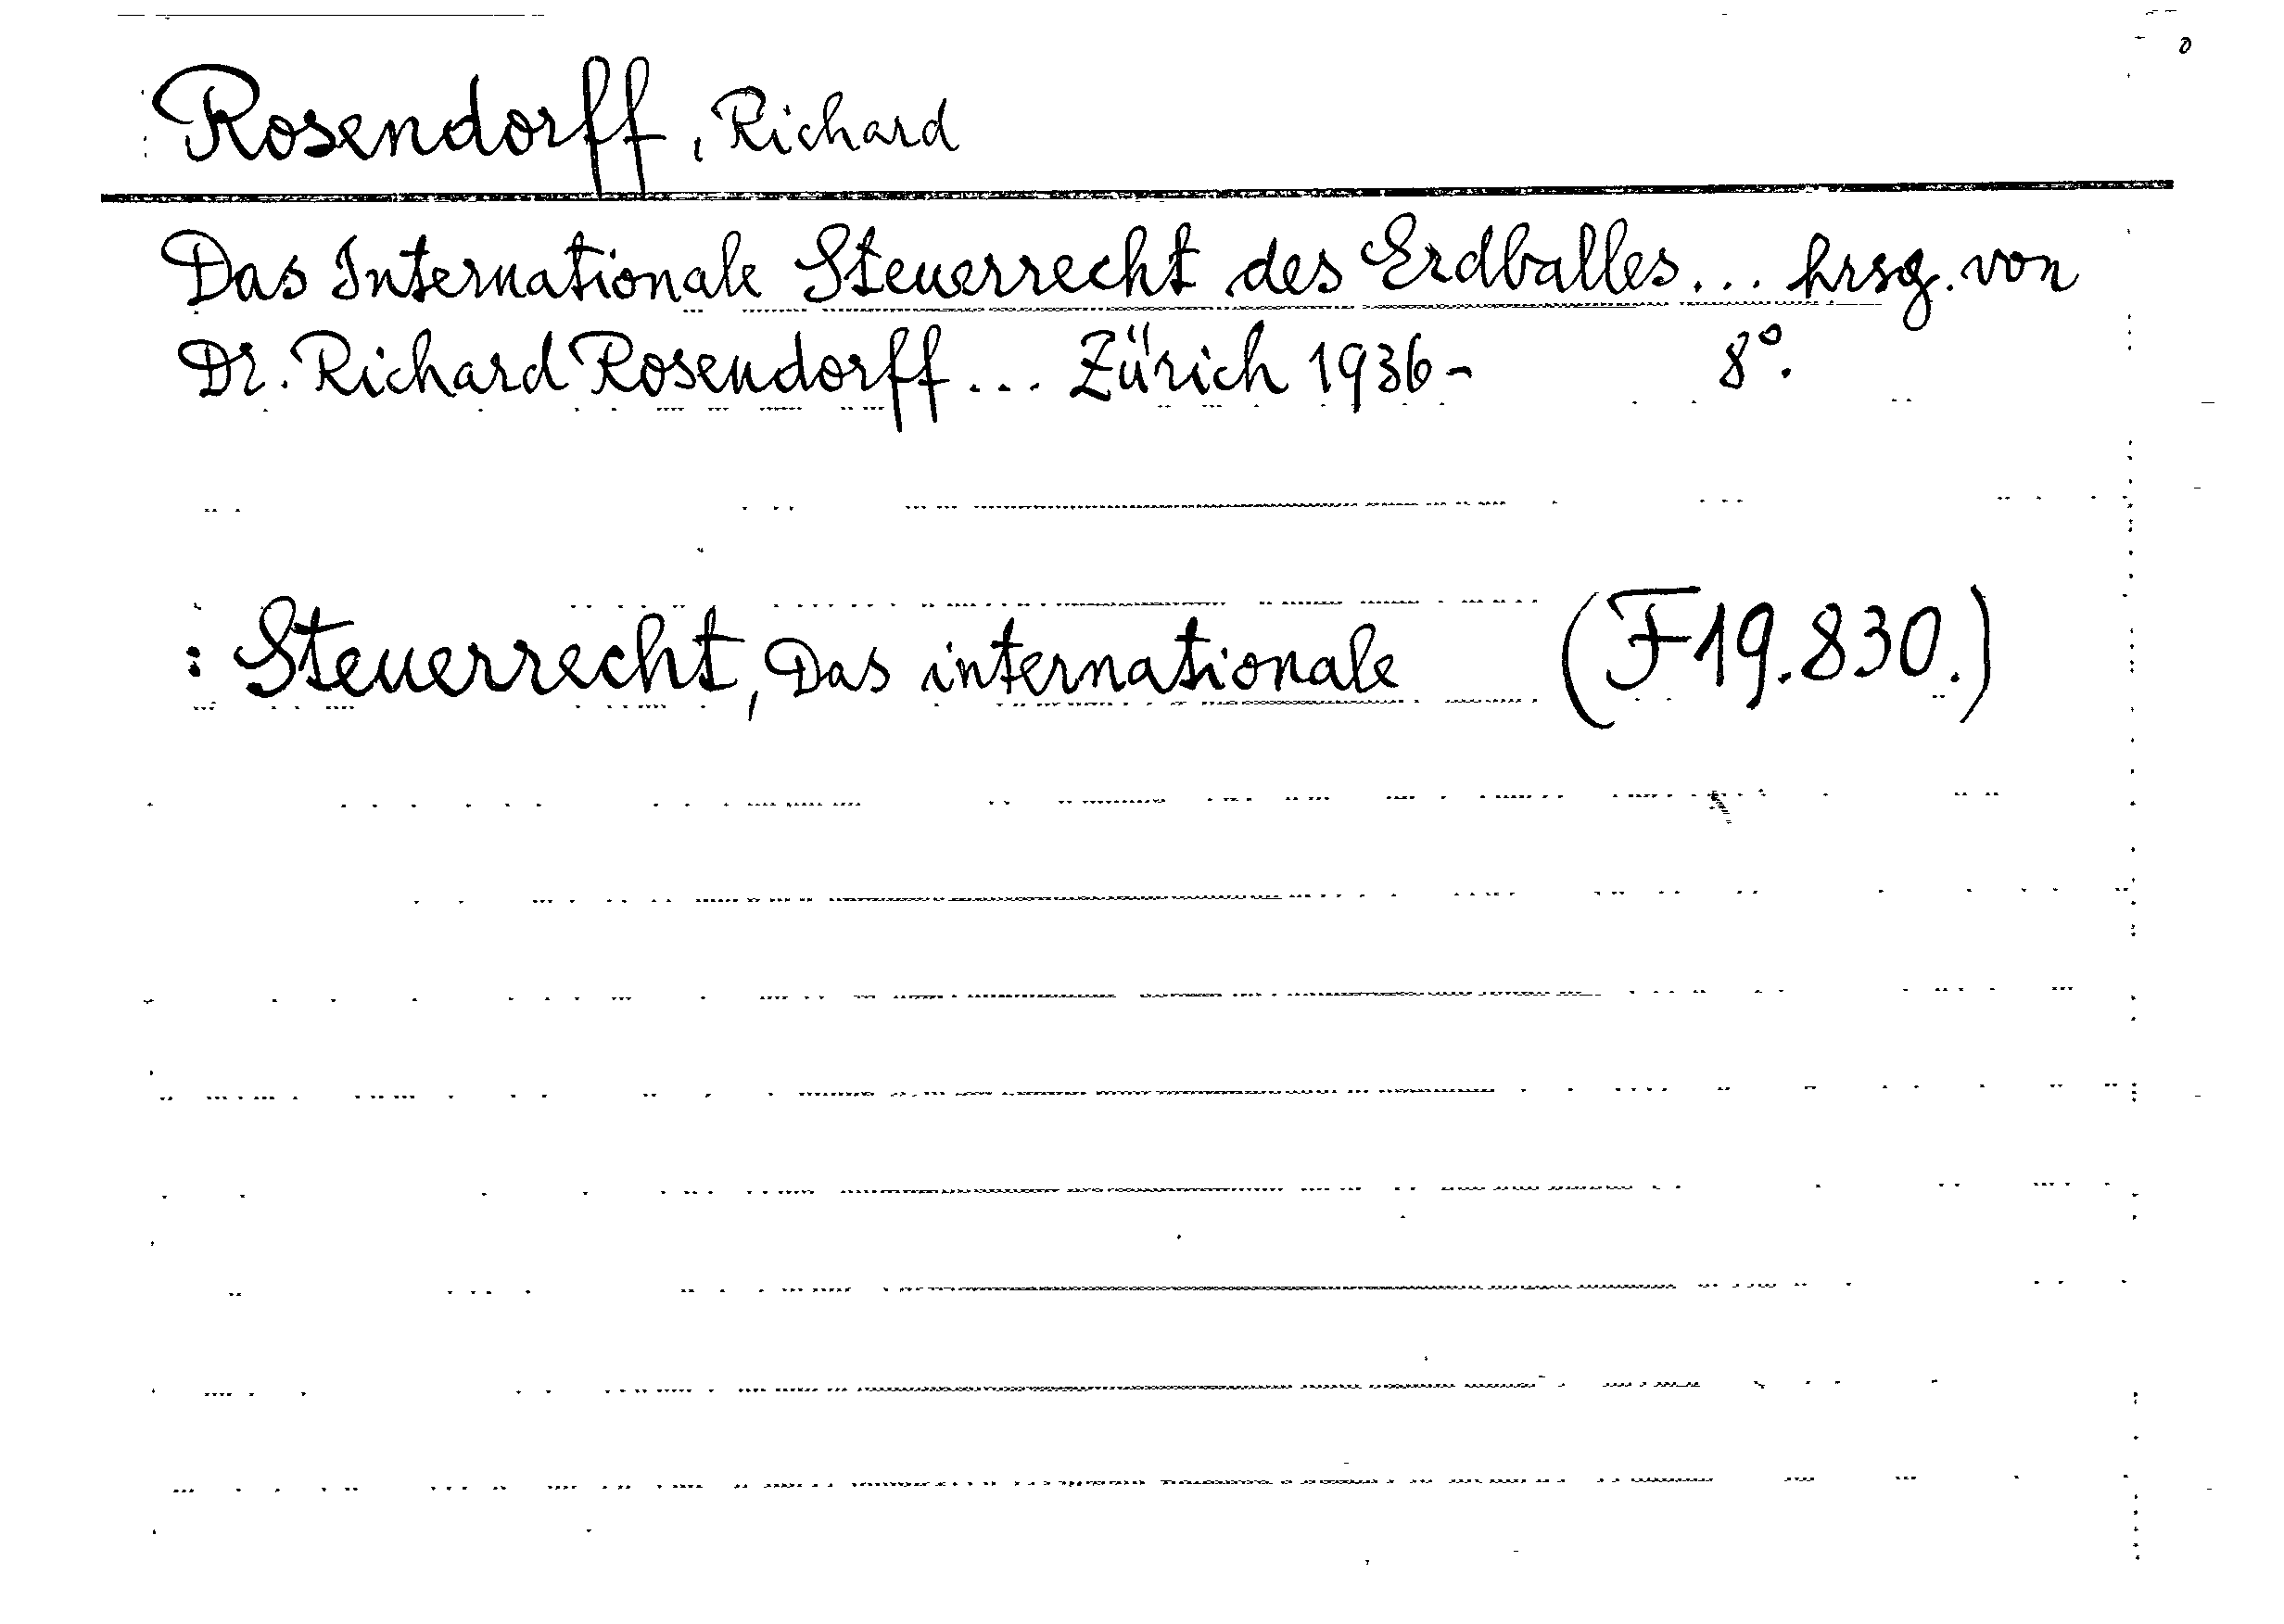 Rosendorff, Richard
Das Internationale Steuerrecht des Erdballes... hrsg. von
Dr. Richard Rosendorff... Zürich 1936- 8°.
: Steuerrecht, Das internationale (F19.830.)